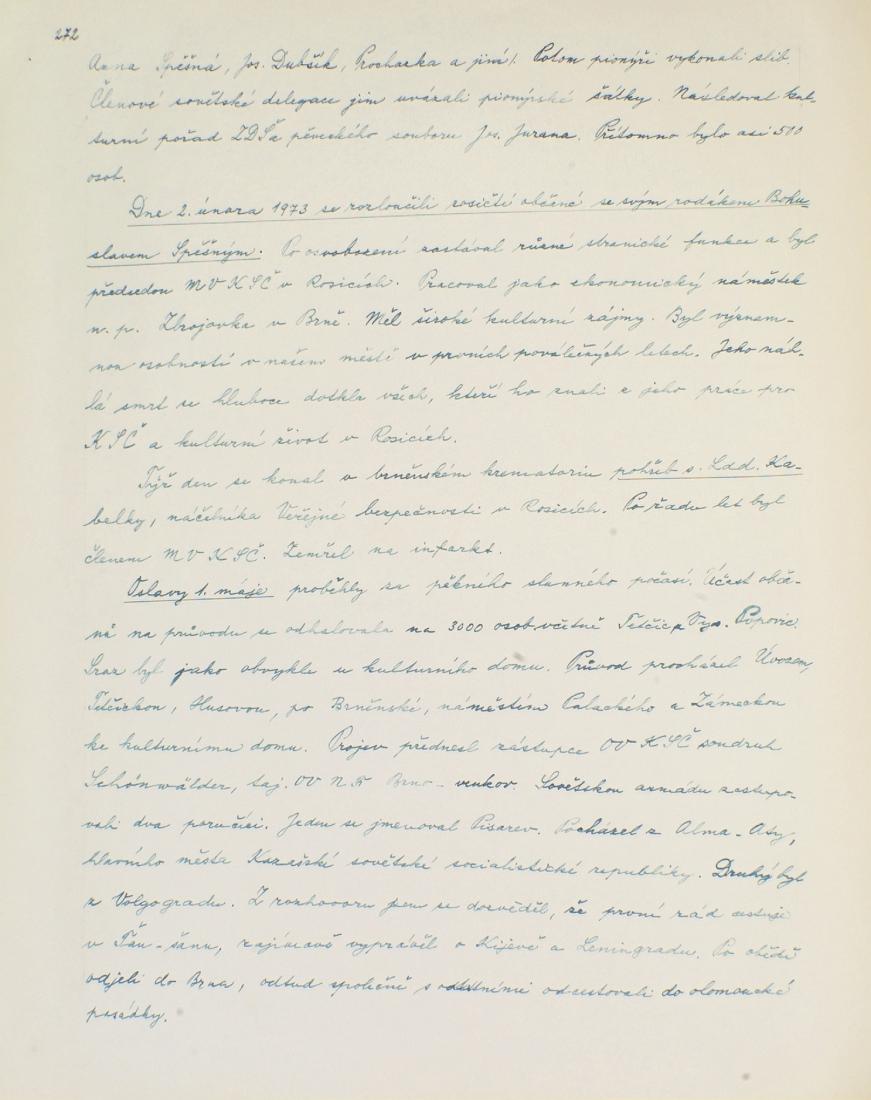 272
Anna Spěšná, Jos. Dubšík, Procházka a jiní/. Potom pionýři vykonali slib.
Členové sovětské delegace jim uvázali pionýrské šátky. Následoval kul-
turní pořad ZDŠ a pěveckého souboru Jos. Jurana. Přítomno bylo asi 500
osob.
Dne 2. února 1973 se rozloučili rosičtí občené se svým rodákem Bohu-
slavem Spěšným. Po osvobození zastával různé stranické funkce a byl
předsedou MV KSČ v Rosicích. Pracoval jako ekonomický náměstek
n. p. Zbrojovka v Brně. Měl široké kulturní zájmy. Byl význam-
nou osobností v našem městě v prvních poválečných letech. Jeho náh-
lá smrt se hluboce dotkla všech, kteří ho znali z jeho práce pro
KSČ a kulturní život v Rosicích.
Týž den se konal v brněnském krematoriu pohřeb s. Lad. Ka-
belky, náčelníka Veřejné bezpečnosti v Rosicích. Po řadu let byl
členem MV KSČ. Zemřel na infarkt.
Oslavy 1. máje proběhly za pěkného slunného počasí. Účast obča-
nů na průvodu se odhalovala na 3000 osob včetně Tetčic a Vys. Popovic.
Sraz byl jako obvykle u kulturního domu. Průvod procházel Úvozem,
Tetčickou, Husovou, po Brněnské, náměstím Palackého a Zámeckou
ke kulturnímu domu. Projev přednesl zástupce OV KSČ soudruh
Schönwälder, taj. OV NF Brno - venkov. Sovětskou armádu zastupo-
vali dva poručíci. Jeden se jmenoval Pisarev. Pocházel z Alma - Aty,
hlavního města Kazašské sovětské socialistické republiky. Druhý byl
z Volgogradu. Z rozhovoru jsem se dozvěděl, že první rád cestuje
v Ťan-šanu, zajímavě vyprávěl o Kijevě a Leningradu. Po obědě
odjeli do Brna, odtud společně s ostatními odcestovali do olomoucké
posádky.